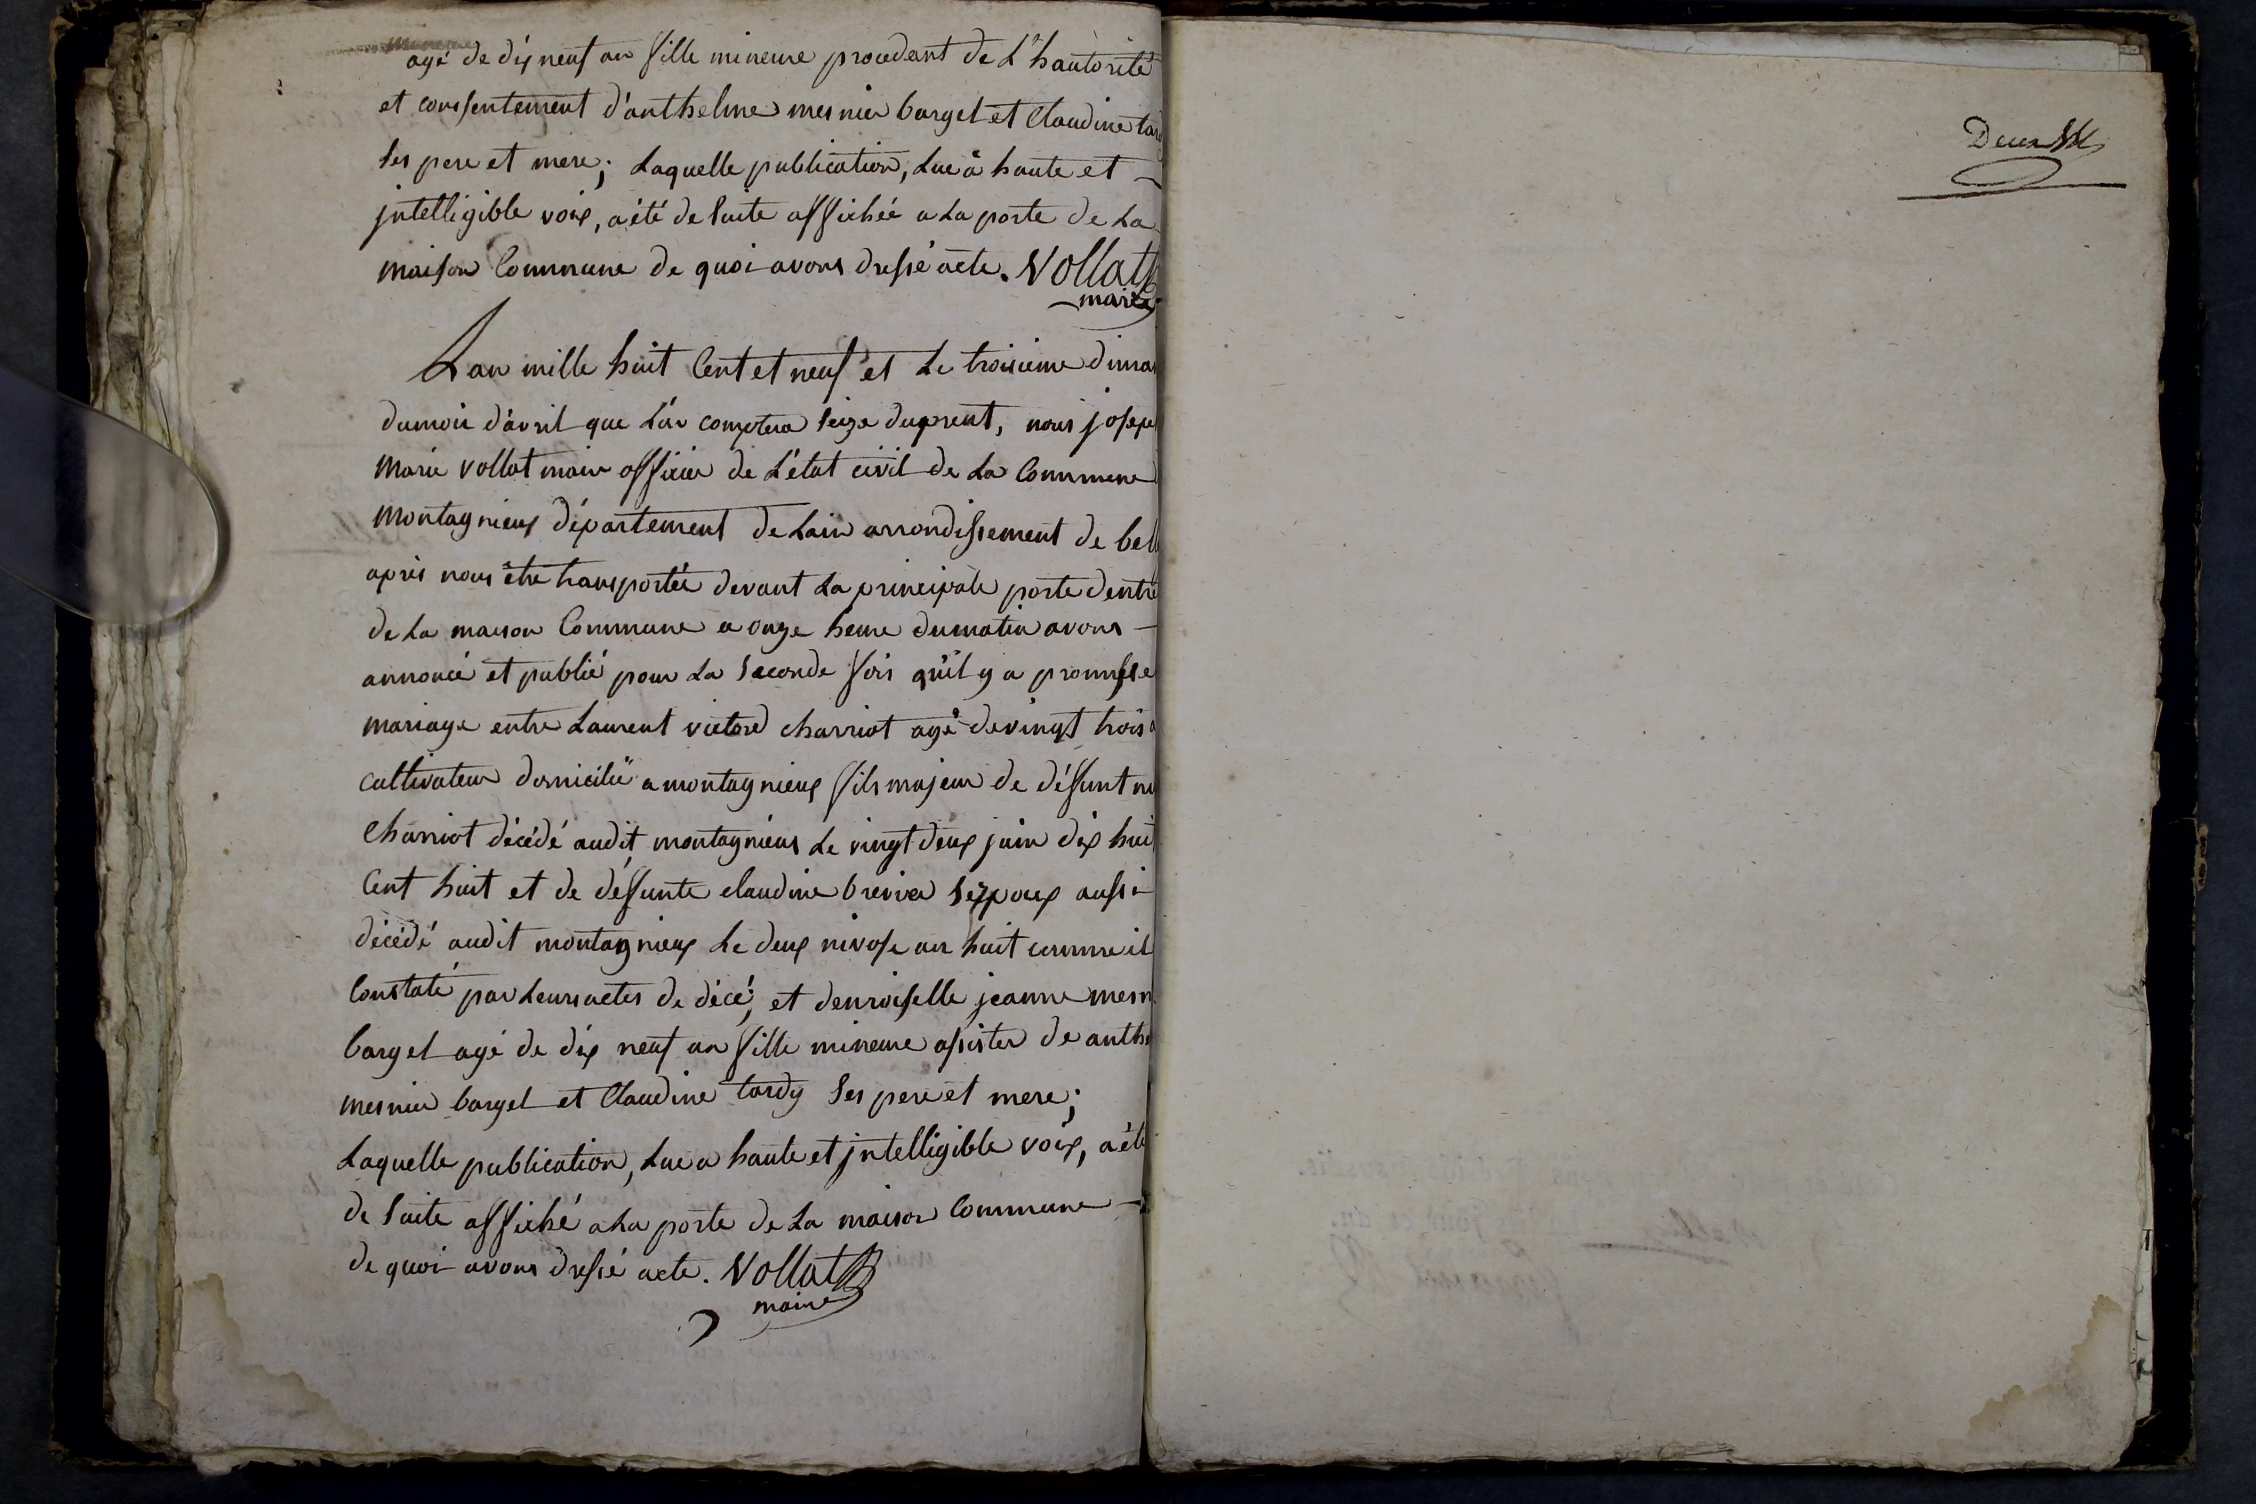 agé de dix neuf an fille mineure procedant de L'hautorité
et consentement d'anthelme mesnier bargel et Claudine tard
ses pere et mere; Laquelle publication, Lue à haute et
jntelligible voix, a été de suite affichée a La porte de La
maison Commune de quoi avons dressé acte. Vollat
maire
Lan mille huit Cent et neuf et Le troisieme diman
du mois d'avril que L'on comptera seize du présent, nous joseph
Marie Vollat maire officier de L'état civil de La Commune
Montagnieux département de Lain arrondissement de bell
après nous être transportée devant La principale porte dentré
de La maison Commune a onze heure du matin avons
annoncé et publié pour La seconde fois qu'il y a promesse
mariage entre Laurent victore charriot agé de vingt trois a
cultivateur domicilié a montagnieux fils majeur de déffunt
Charriot décédé audit montagnieux Le vingt deux juin dix huit
Cent huit et de déffunte claudine brevier aussi
décédé audit montagnieux Le deux nivose an huit comme il
Constaté par Leurs actes de décé; et demoiselle jeanne mesn
bargel agé de dix neuf an fille mineure assister de anthe
mesnier bargel et Claudine tardy ses pere et mere;
Laquelle publication, Lue a haute et jntelligible voix, a été
de suite affiché a La porte de La maison Commune
de quoi avons dressé acte. Vollat
maire
Deux